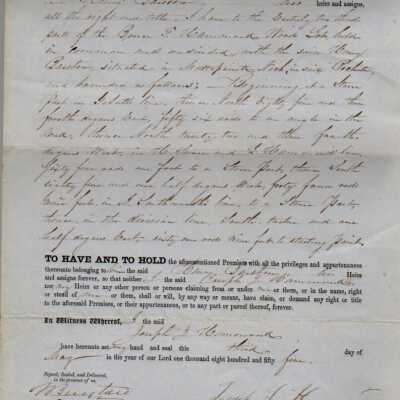 heirs and assigns,
all the right and title I have to the undivided two thirds
part of the P. Hammond Wood Lot held
in common and undivided with the said Henry
situated in Mattapoisett Neck in said Rochester
and bounded as follows: Beginning at a Stone
post in line, thence North Eighty five and three
fourth degrees West, fifty six rods to an angle in the
thence North twenty two and three fourths
degrees West, in the line,
fifty five rods one foot to a Stone Post, thence South
eighty five and one half degrees West, forty four rods
nine feet, in J. line, to a Stone Post,
thence, in the division line South and one
half degrees East sixty one rods five feet to starting point.
TO HAVE AND TO HOLD the aforementioned Premises with all the privileges and appurtenances
thereunto belonging to him the said Henry his Heirs
and assigns forever, so that neither I the said Joseph Hammond
nor my Heirs or any other person or persons claiming from or under me or them, or in the name, right
or stead of me or them, shall or will, by any way or means, have, claim, or demand any right or title
to the aforesaid Premises, or their appurtenances, or to any part or parcel thereof, forever.
In Witness Whereof, I the said
Joseph Hammond
have hereunto set my hand and seal this third day of
May in the year of our Lord one thousand eight hundred and fifty five.
Signed, Sealed, and Delivered,
in the presence of us,
Joseph